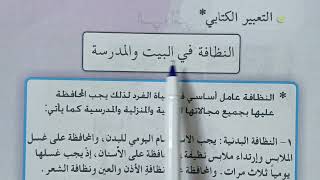 * التعبير الكتابي
النظافة في البيت والمدرسة
* النظافة عامل أساسي في حياة الفرد لذلك يجب المحافظة
عليها بجميع مجالاتها والمنزلية والمدرسية كما يأتي:
١- النظافة البدنية : يجب اليومي للبدن، والمحافظة على غسل
الملابس وإرتداء ملابس نظيفة، على الأسنان، إذ يجب غسلها
يوميا ثلاث مرات. والمحافظة على نظافة الأذن والعين ونظافة الشعر.